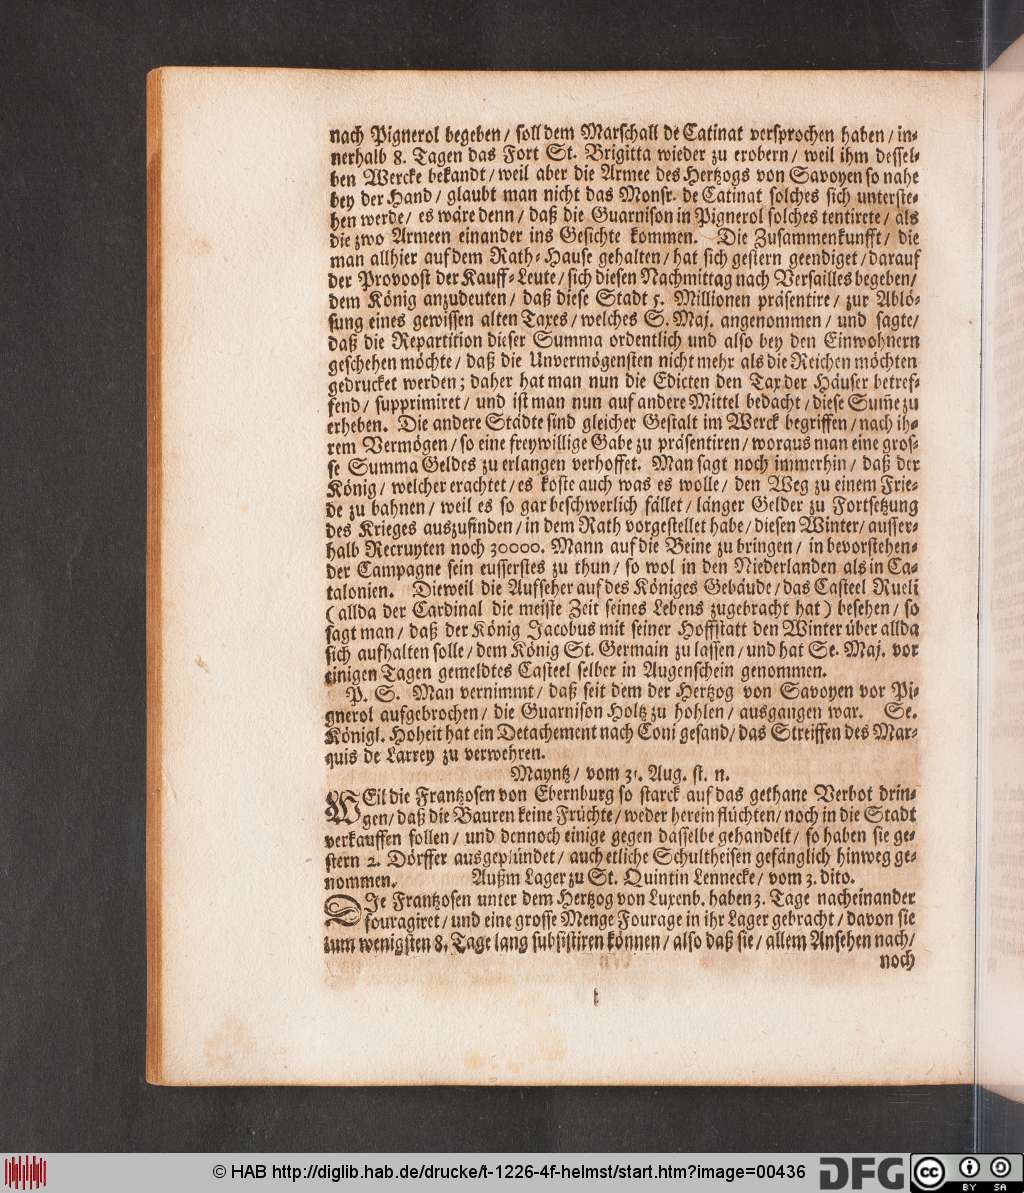 nach Pignerol begeben / soll dem Marschall de Catinat versprochen haben / in-
nerhalb 8. Tagen das Fort St. Brigitta wieder zu erobern / weil ihm dessel-
ben Wercke bekandt / weil aber die Armee des Hertzogs von Savoyen so nahe
bey der Hand / glaubt man nicht das Monsr. de Catinat solches sich unterste-
hen werde / es wäre denn / daß die Guarnison in Pignerol solches tentirete / als
die zwo Armeen einander ins Gesichte kommen. Die Zusammenkunfft / die
man allhier auf dem Rath-Hause gehalten / hat sich gestern geendiget / darauf
der Provoost der Kauff-Leute / sich diesen Nachmittag nach Versailles begeben /
dem König anzudeuten / daß diese Stadt 5. Millionen präsentire / zur Ablö-
sung eines gewissen alten Taxes / welches S. Maj. angenommen / und sagte /
daß die Repartition dieser Summa ordentlich und also bey den Einwohnern
geschehen möchte / daß die Unvermögensten nicht mehr als die Reichen möchten
gedrucket werden ; daher hat man nun die Edicten den Tax der Häuser betref-
fend / supprimiret / und ist man nun auf andere Mittel bedacht / diese Sum̃e zu
erheben. Die andere Städte sind gleicher Gestalt im Werck begriffen / nach ih-
rem Vermögen / so eine freywillige Gabe zu präsentiren / woraus man eine gros-
se Summa Geldes zu erlangen verhoffet. Man sagt noch immerhin / daß der
König / welcher erachtet / es koste auch was es wolle / den Weg zu einem Frie-
de zu bahnen / weil es so gar beschwerlich fället / länger Gelder zu Fortsetzung
des Krieges auszufinden / in dem Rath vorgestellet habe / diesen Winter / ausser-
halb Recruyten noch 30000. Mann auf die Beine zu bringen / in bevorstehen-
der Campagne sein eusserstes zu thun / so wol in den Niederlanden als in Ca-
talonien. Dieweil die Aufseher auf des Königes Gebäude / das Casteel Rueli
( allda der Cardinal die meiste Zeit seines Lebens zugebracht hat ) besehen / so
sagt man / daß der König Jacobus mit seiner Hoffstatt den Winter über allda
sich aufhalten solle / dem König St. Germain zu lassen / und hat Se. Maj. vor
einigen Tagen gemeldtes Casteel selber in Augenschein genommen.
P. S. Man vernimmt / daß seit dem der Hertzog von Savoyen vor Pi-
gnerol aufgebrochen / die Guarnison Holtz zu hohlen / ausgangen war. Se.
Königl. Hoheit hat ein Detachement nach Coni gesand / das Streiffen des Mar-
quis de Larrey zu verwehren.
Mayntz / vom 31. Aug. st. n.
WEil die Frantzosen von Ebernburg so starck auf das gethane Verbot drin-
gen / daß die Bauren keine Früchte / weder herein flüchten / noch in die Stadt
verkauffen sollen / und dennoch einige gegen dasselbe gehandelt / so haben sie ge-
stern 2. Dörffer ausgeplündet / auch etliche Schultheisen gefänglich hinweg ge-
nommen. Außm Lager zu St. Quintin Lennecke / vom 3. dito.
DIe Frantzosen unter dem Hertzog von Luxenb. haben 3. Tage nacheinander
fouragiret / und eine grosse Menge Fourage in ihr Lager gebracht / davon sie
zum wenigsten 8. Tage lang subsistiren können / also daß sie / allem Ansehen nach /
noch
© HAB http://diglib.hab.de/drucke/t-1226-4f-helmst/start.htm?image=00436
DFG
cc
BY SA